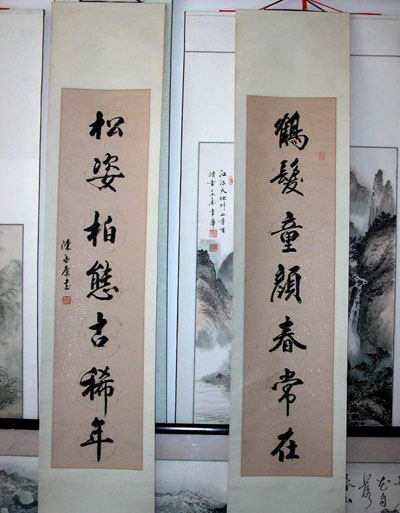 鶴髮童顏春常在
松姿柏態古稀年